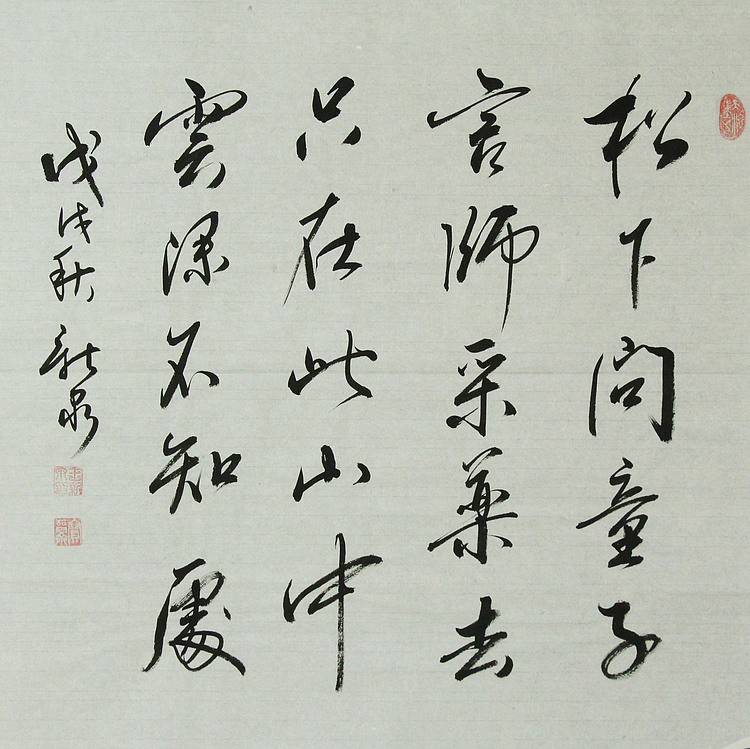 松下問童子
言師采藥去
只在此山中
雲深不知處
戊戌秋新泉